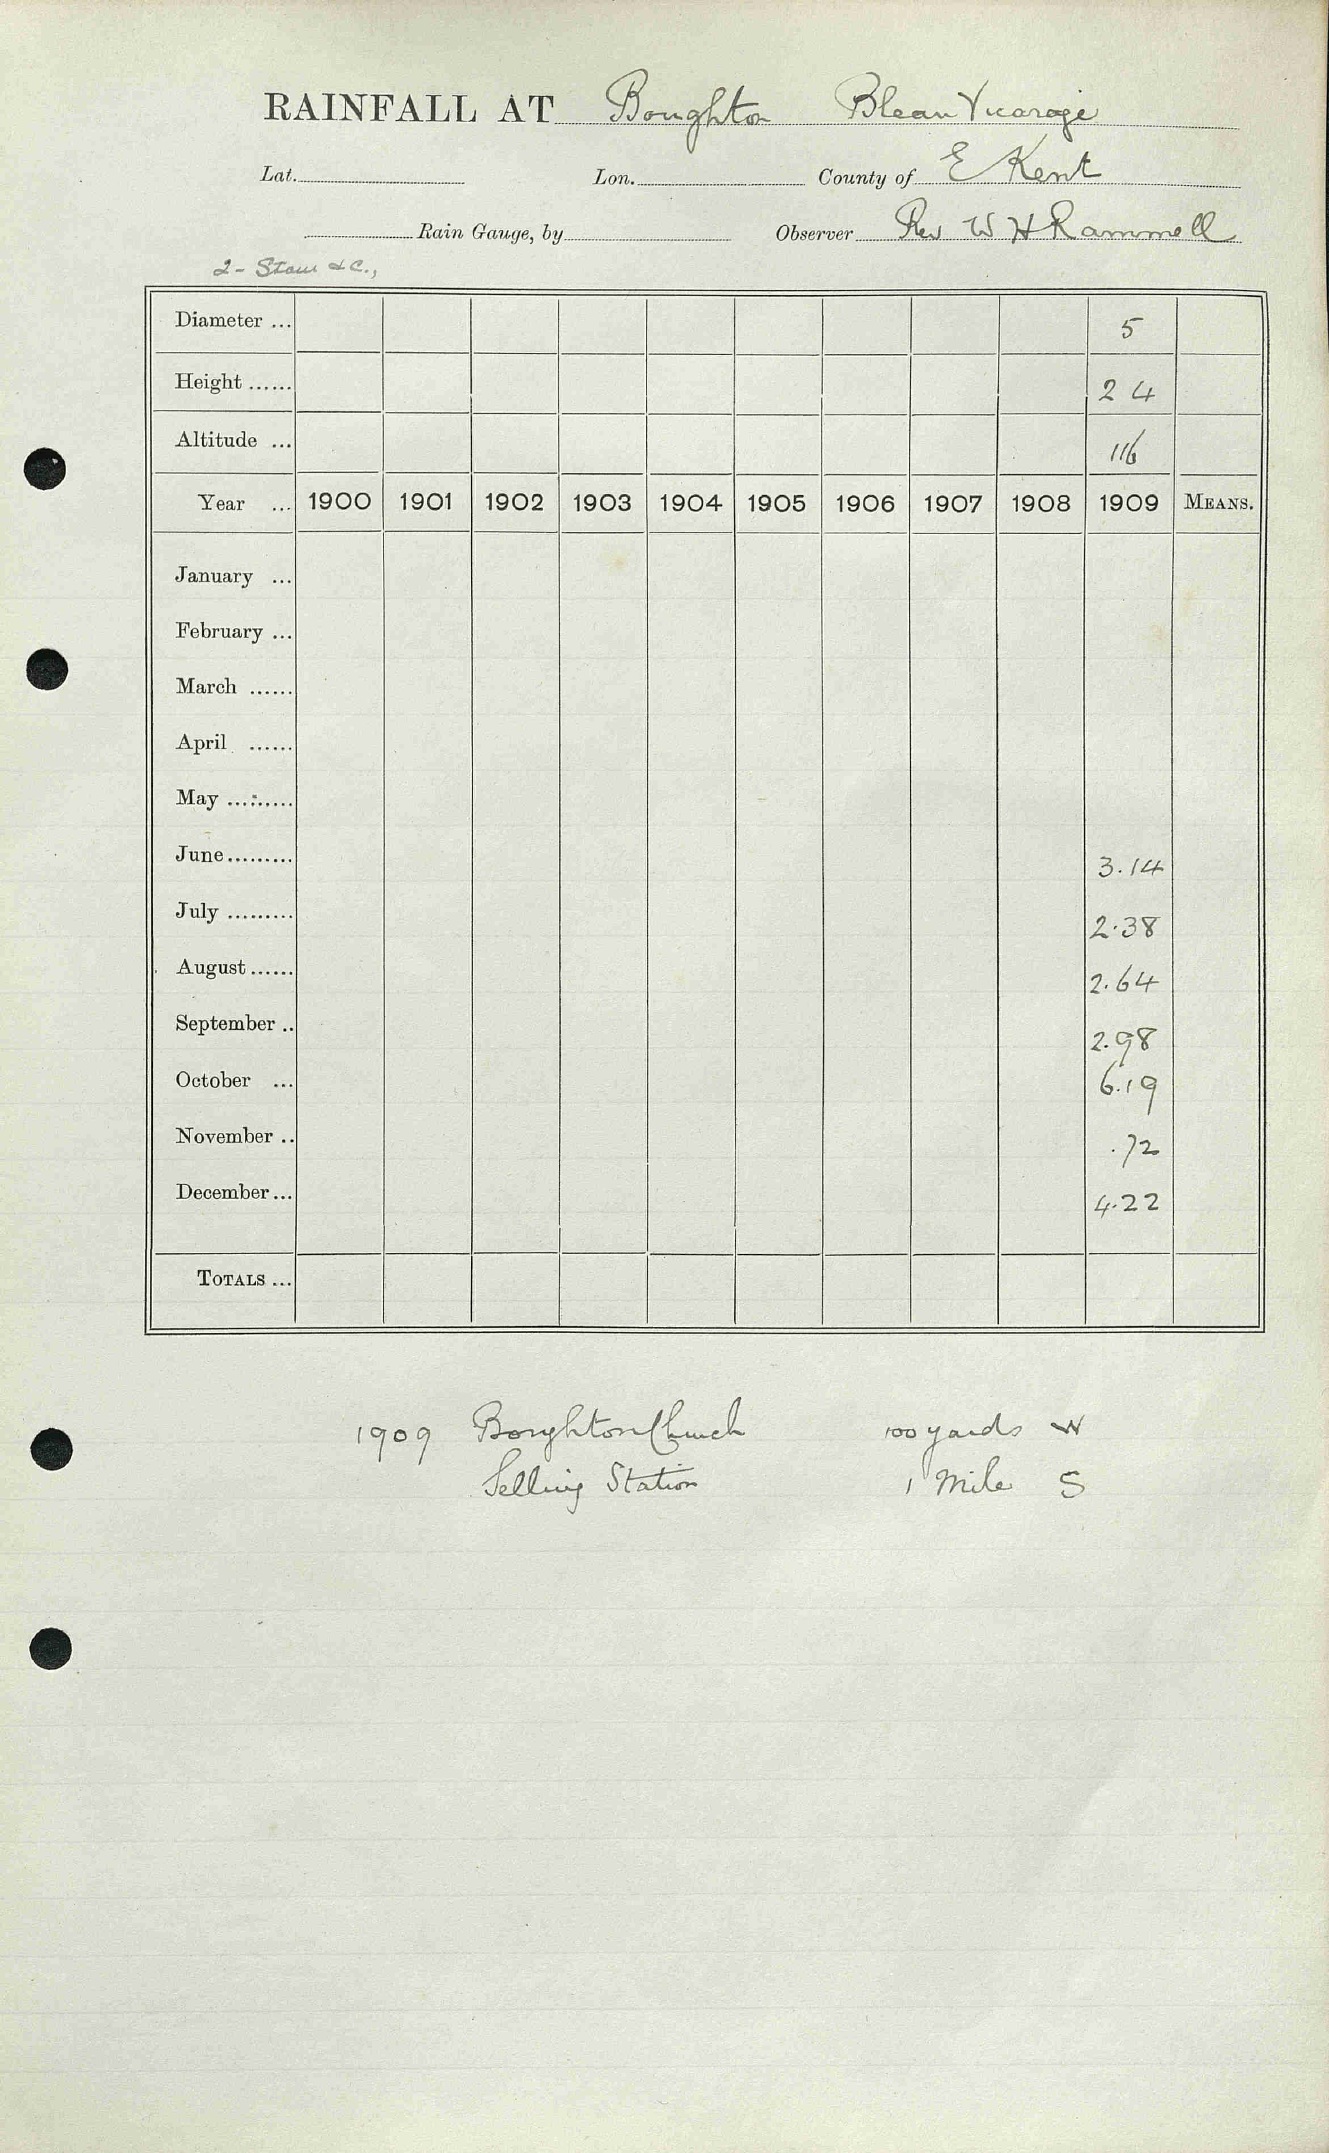 RAINFALL AT Boughton Blean Vicarage
Lat. Lon. County of E Kent
Rain Gauge, by Observer Rev W H Rammell
2- Stour &c.,
Diameter ... 5
Height ...... 24
Altitude ... 116
Year ... 1900 1901 1902 1903 1904 1905 1906 1907 1908 1909 MEANS.
January ...
February ...
March ......
April ......
May .........
June ......... 3.14
July ......... 2.38
August ...... 2.64
September .. 2.98
October ... 6.19
November .. .72
December ... 4.22
TOTALS ...
1909 Boughton Church 100 yards W
Selling Station 1 Mile S